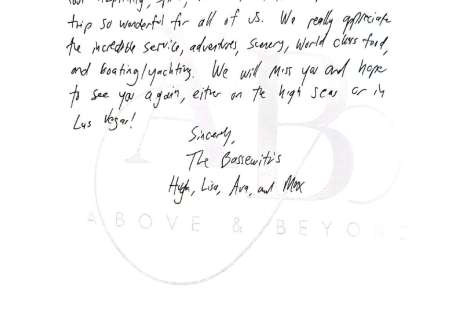 trip so wonderful for all of us. We really appreciate
the incredible service, adventures, scenery, World class food,
and boating/yachting. We will miss you and hope
to see you again, either on the high seas or in
Las Vegas!
Sincerely,
The Bassewitz's
Hugh, Lisa, Ava, and Max
AB
ABOVE & BEYOND